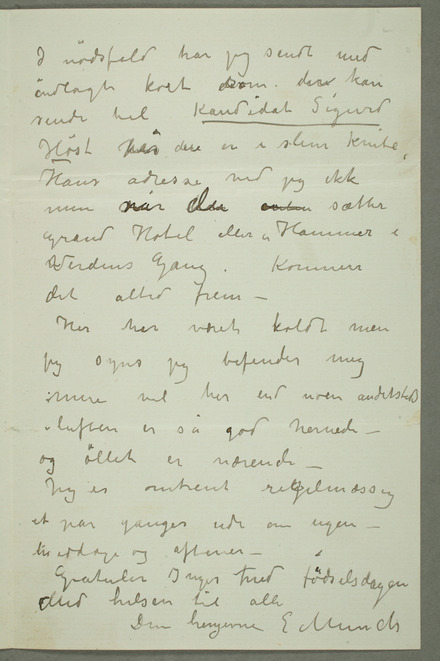 I nödsfald har jeg sendt med
indlagte kort som du kan
sende til Kandidat Sigurd
Höst når du er i slem knibe,
Hans adresse ved jeg ikke
men når du sætter
Grand Hotel eller Hammer i
Verdens Gang. Kommer
det altid frem –
Her har været koldt men
jeg synes jeg befinder mig
mere vel her end noen andetsteds
luften er så god hernede –
og öllet er nærende –
Jeg er omtrent regelmæssig
et par ganger ude om ugen –
middage og aftener –
Gratuler Inger med födselsdagen
Med hilsen til alle
Din hengivne E Munch